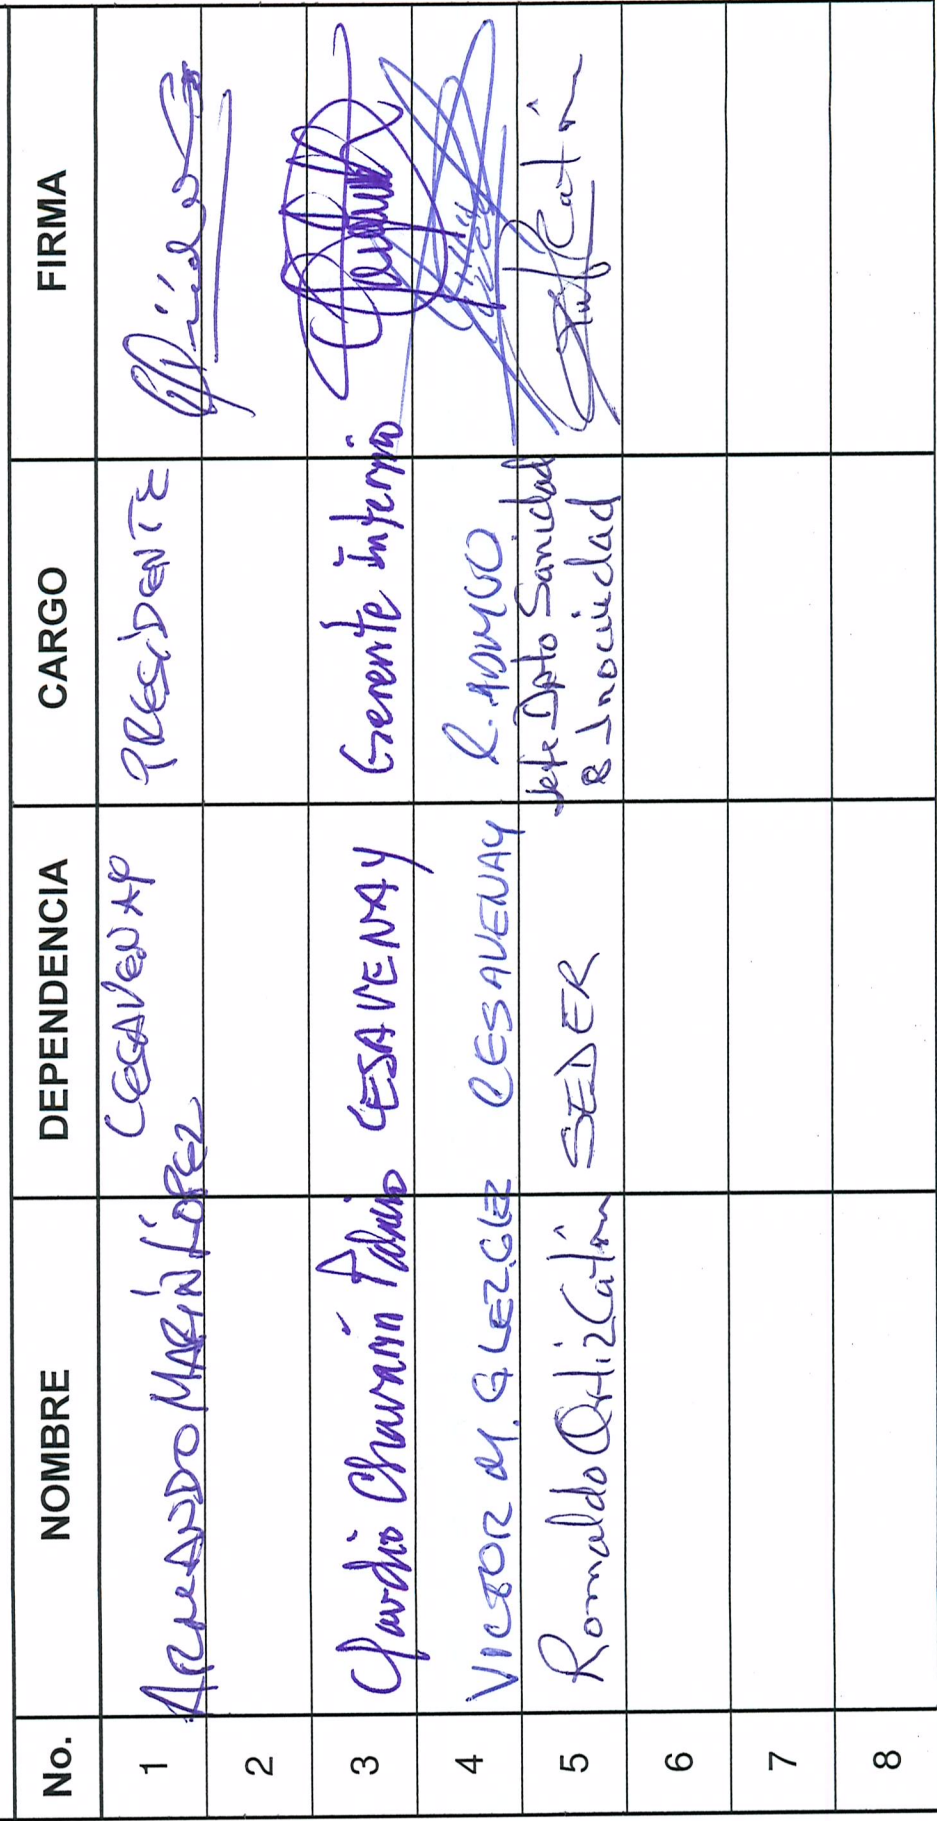 No. NOMBRE DEPENDENCIA CARGO FIRMA
1 ARMANDO MARÍN LÓPEZ CESAVENAY PRESIDENTE
2
3 Claudio Chavarín Patricio CESAVENAY Gerente interino
4 VICTOR M. GLEZ. GLEZ CESAVENAY R. ADMVO
5 Romualdo Ortiz Catín SEDER Jefe Dpto Sanidad
& Inocuidad
6
7
8